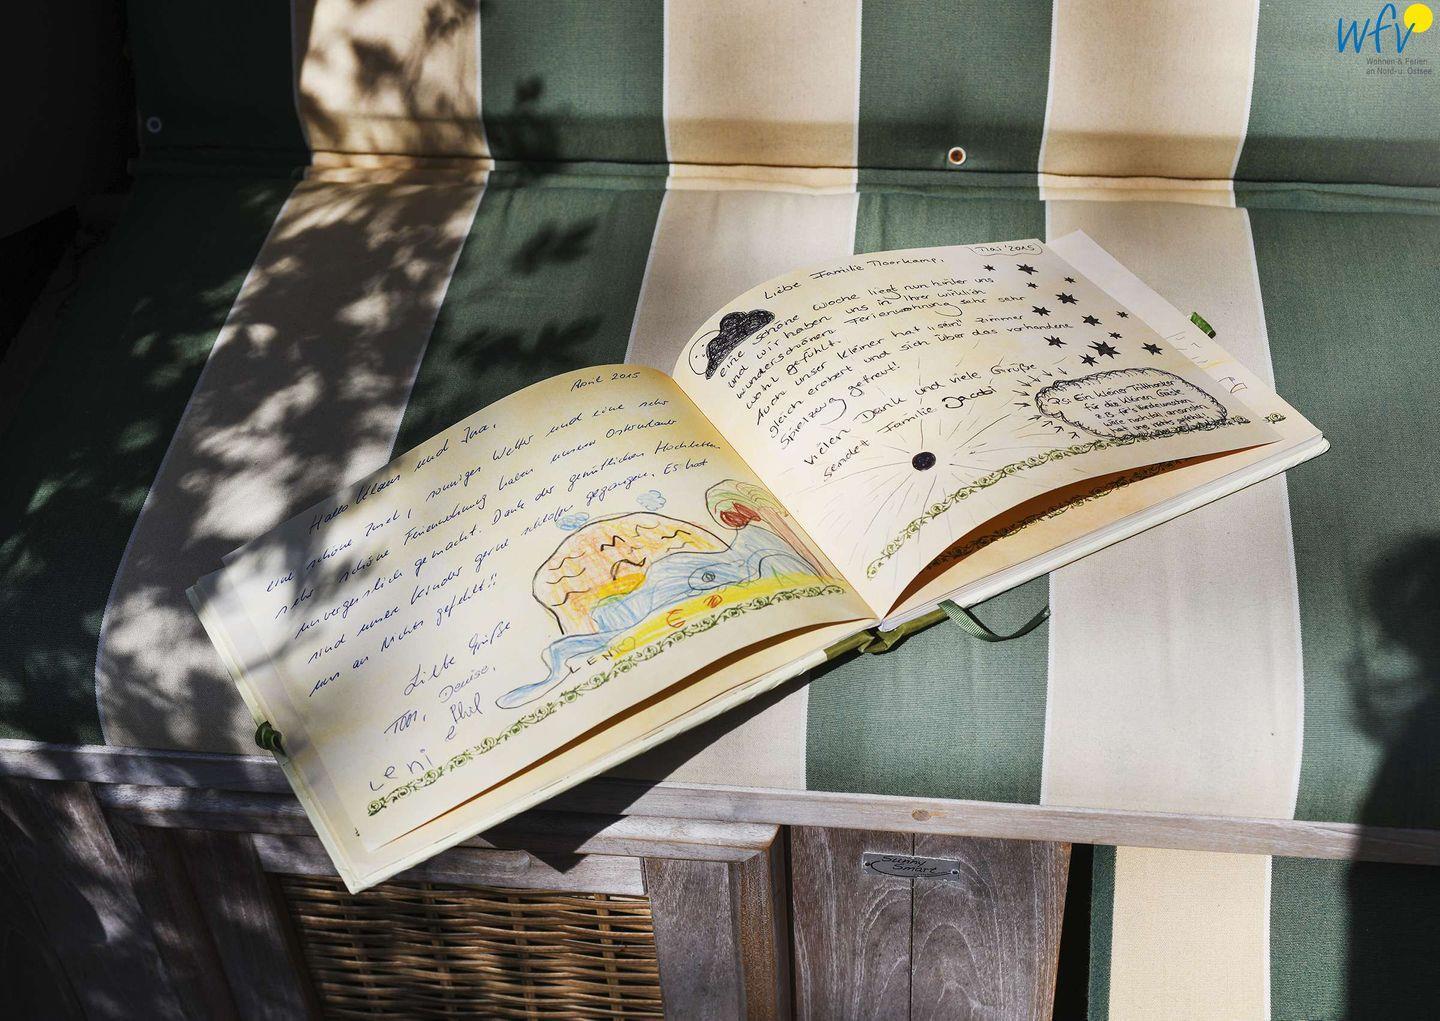 April 2015
Hallo Klaus und Ina,
eine schöne Insel, sonniges Wetter und eine sehr
sehr schöne Ferienwohnung haben unseren Osterurlaub
unvergesslich gemacht. Dank der gemütlichen Hochbetten
sind unsere Kinder gerne schlafen gegangen. Es hat
uns an Nichts gefehlt!!
Liebe Grüße
Tom, Denise,
Phil
& Leni
LENI
Mai '2015
Liebe Familie Moorkamp,
eine schöne Woche liegt nun hinter uns
und wir haben uns in Ihrer wirklich
wunderschönen Ferienwohnung sehr sehr
wohl gefühlt.
Auch unser Kleiner hat "sein" Zimmer
gleich erobert und sich über das vorhandene
Spielzeug gefreut!
Vielen Dank und viele Grüße
sendet Familie Jacobi
PS: Ein kleiner Tritthocker
für die kleinen Gäste
z.B. für's Händewaschen
wäre noch ansonsten
hat uns nichts gefehlt!
Sunny
Smart
wfv
Wohnen & Ferien
an Nord- u. Ostsee